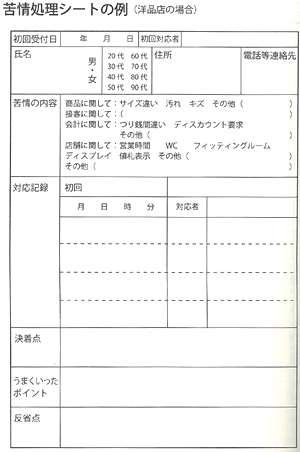 苦情処理シートの例（洋品店の場合）
初回受付日 年 月 日 初回対応者
氏名 男・女 20代 60代 住所 電話等連絡先
30代 70代
40代 80代
50代 90代
苦情の内容 商品に関して：サイズ違い 汚れ キズ その他（ ）
接客に関して：（ ）
会計に関して：つり銭間違い ディスカウント要求
その他（ ）
店舗に関して：営業時間 WC フィッティングルーム
ディスプレイ 値札表示 その他（ ）
その他（ ）
対応記録 初回
月 日 時 分 対応者
決着点
うまくいった
ポイント
反省点